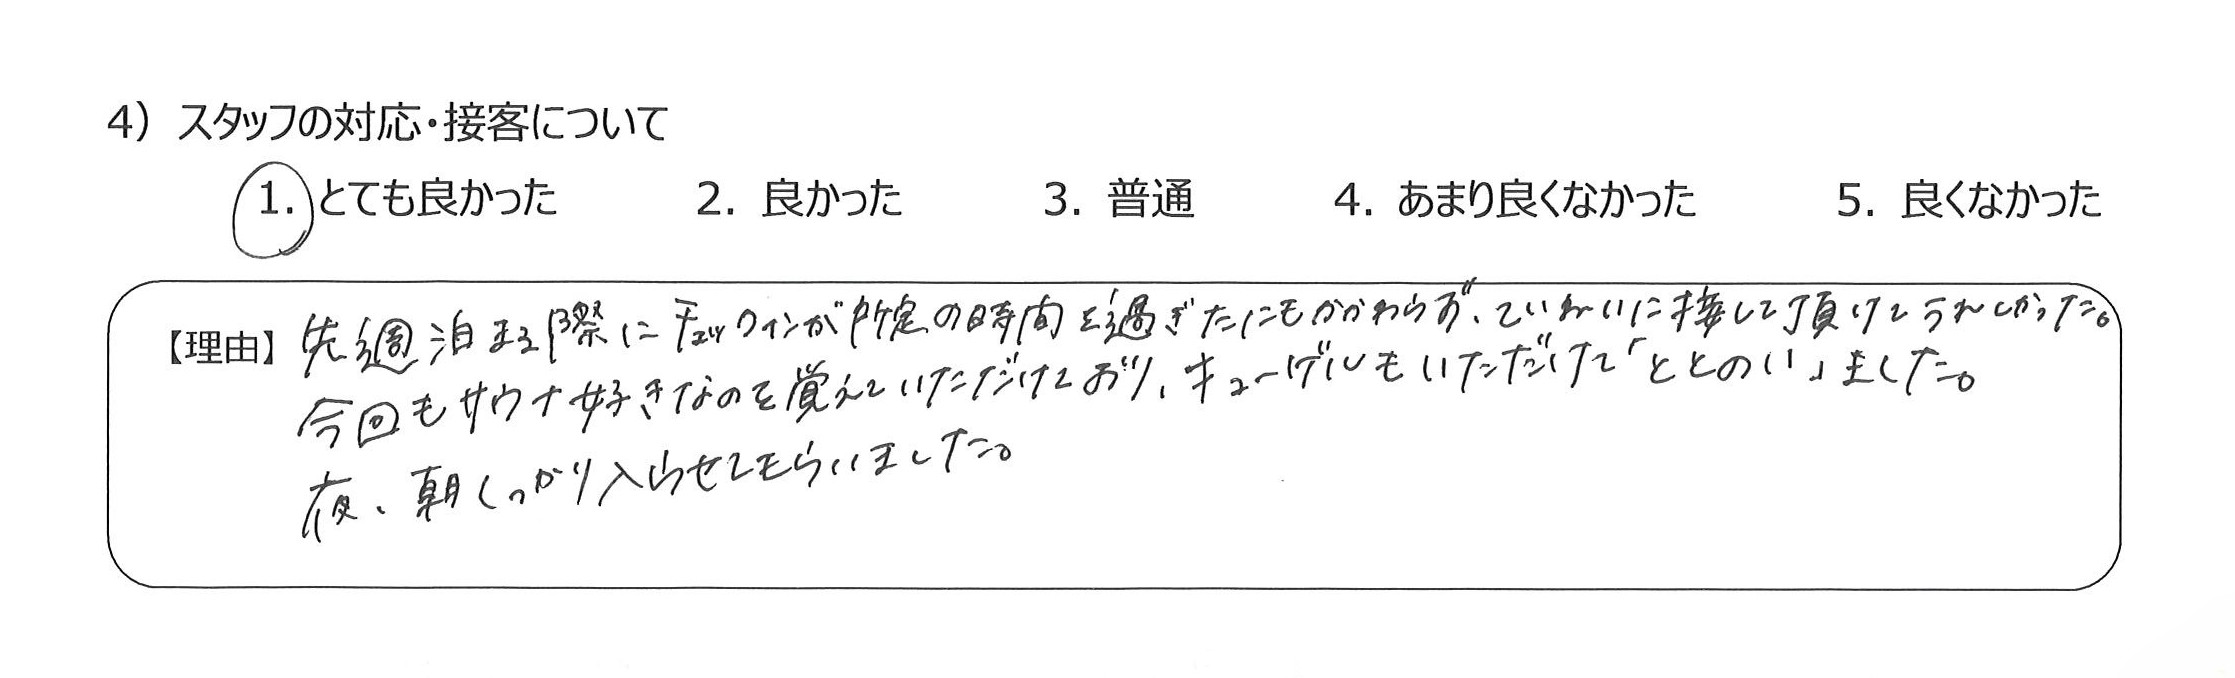 4) スタッフの対応・接客について
1. とても良かった 2. 良かった 3. 普通 4. あまり良くなかった 5. 良くなかった
【理由】 先週泊まる際にチェックインが所定の時間を過ぎたにもかかわらず、ていねいに接して頂けてうれしかった。
今回もサウナ好きなのを覚えていただけており、キューゲルもいただけて「ととのい」ました。
夜、朝しっかり入らせてもらいました。